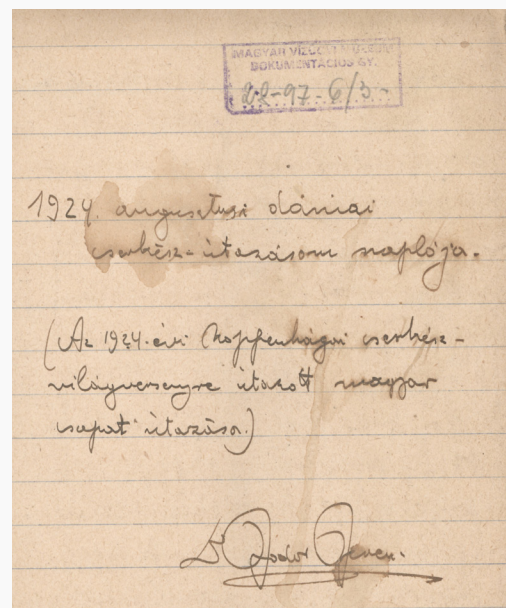 MAGYAR VÍZÜGYI MÚZEUM
DOKUMENTÁCIÓS GY.
22-97.6/3-
1924. augusztusi dániai
cserkész-útazásom naplója.
(Az 1924. évi koppenhágai cserkész-
világversenyre útazott magyar
csapat útazása.)
Dr Fodor Ferenc.